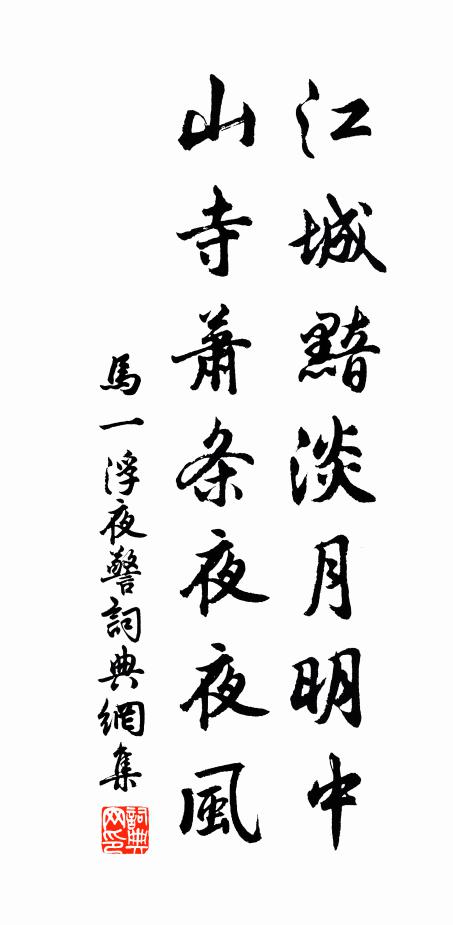 江城黯淡月明中
山寺萧条夜夜風
馬一浮夜警詞典網集
詞典网印